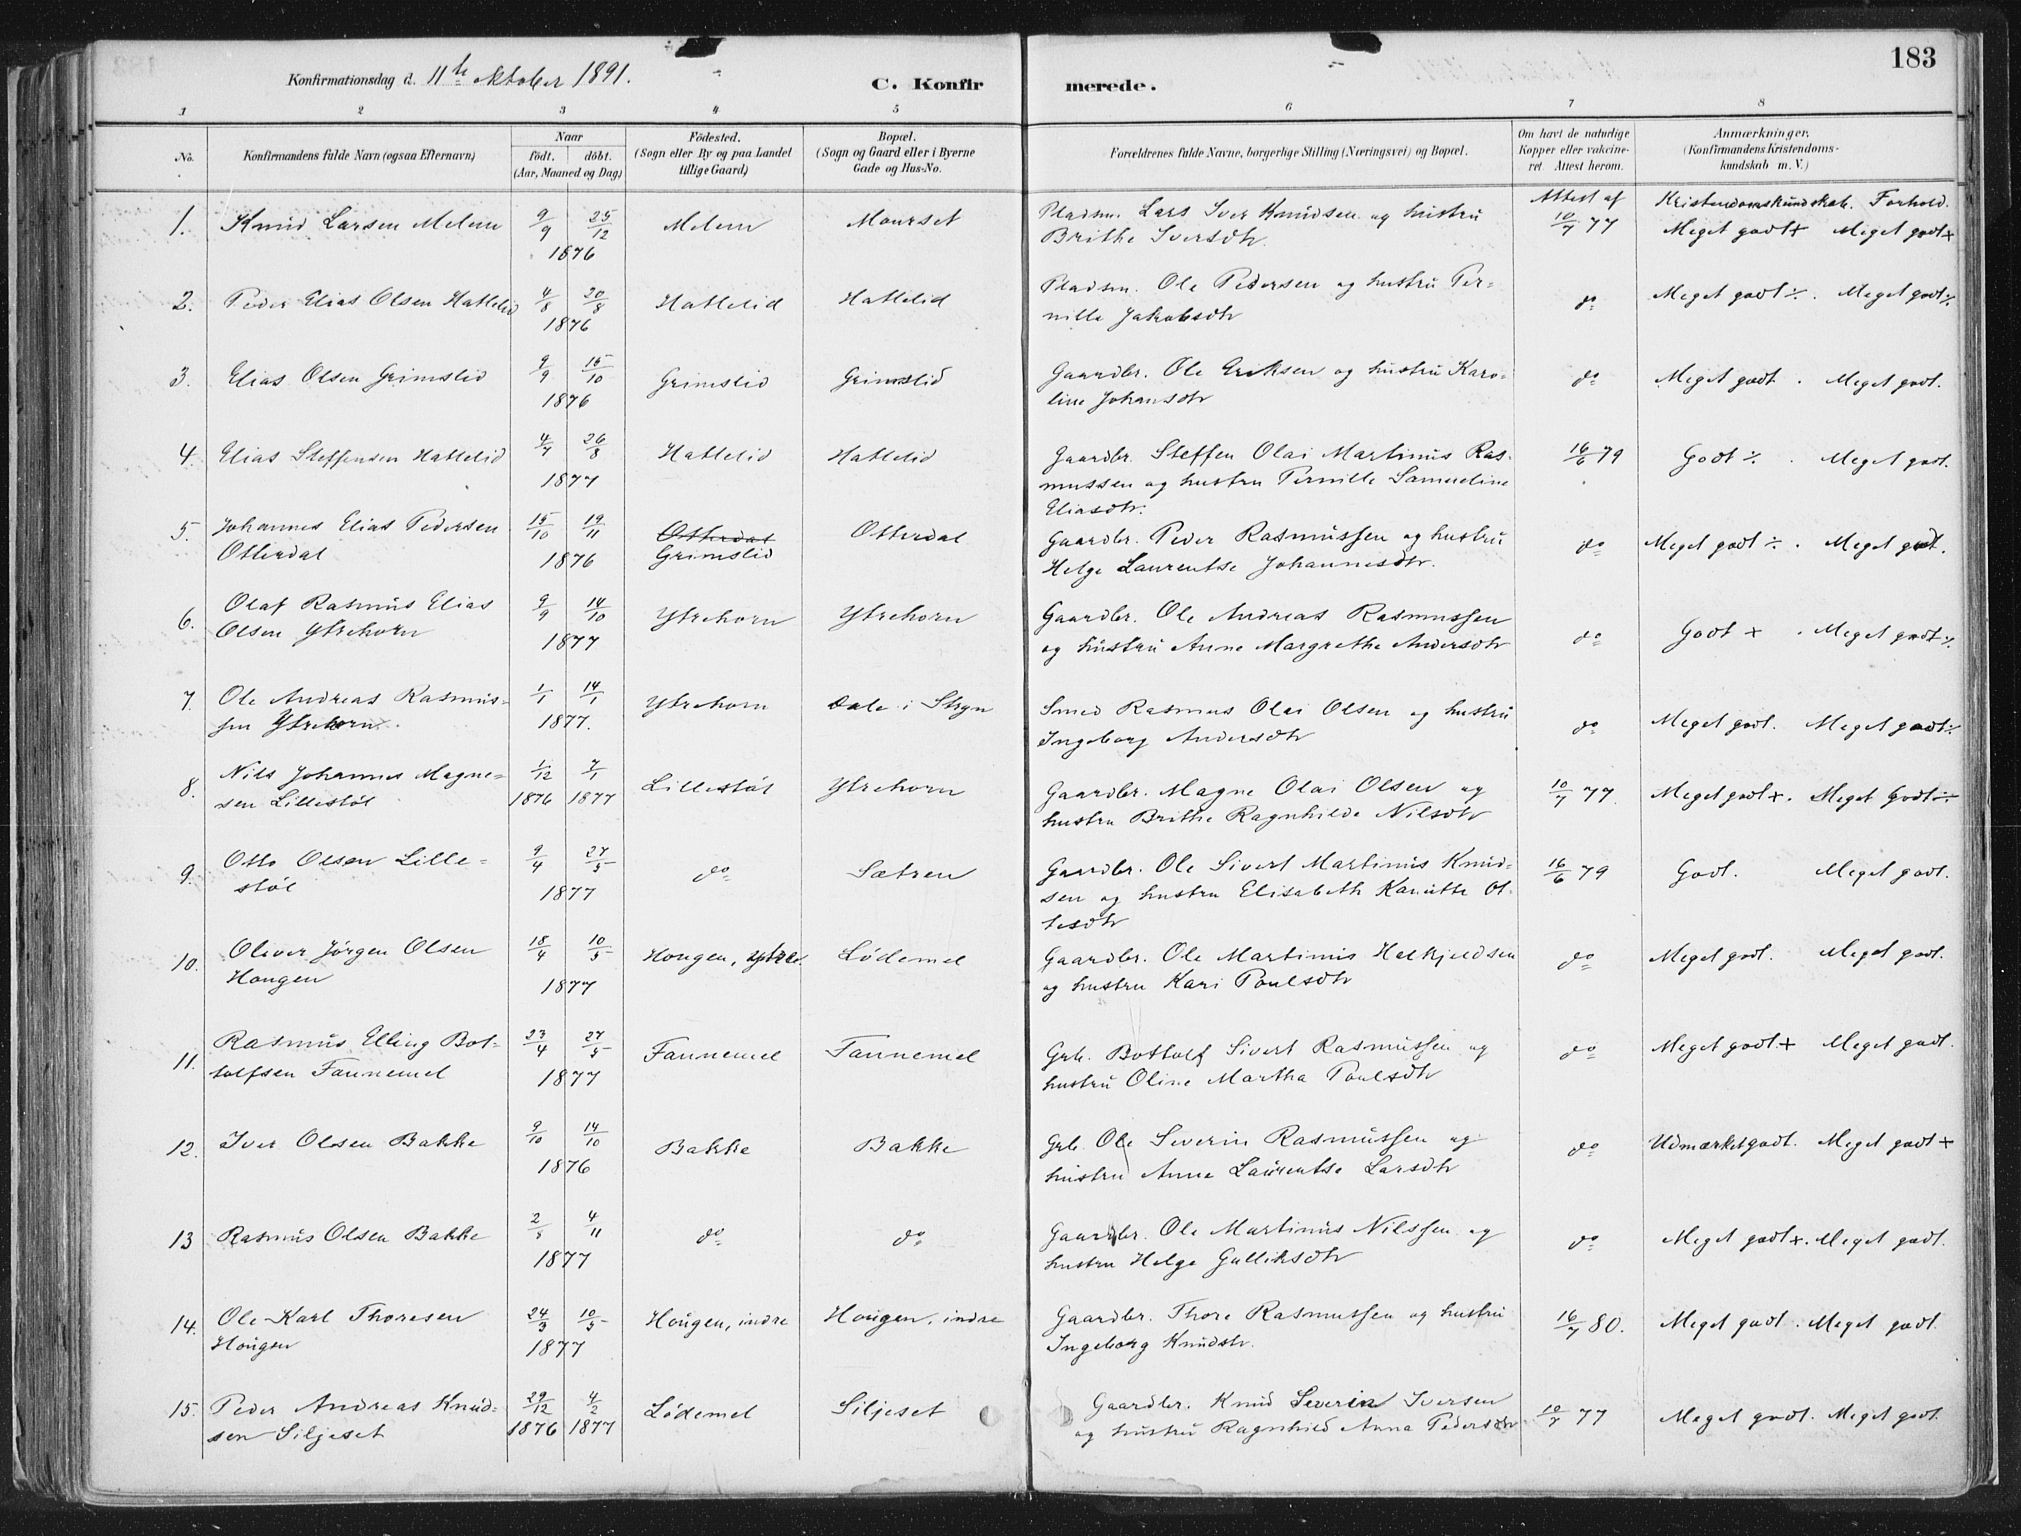 183
Konfirmationsdag d. 11te oktober 1891.
C. Konfirmerede.
1 2 3 4 5 6 7 8
No.
Konfirmandens fulde Navn (ogsaa Efternavn)
Naar
födt. döbt.
(Aar, Maaned og Dag)
Födested.
(Sogn eller By og paa Landet
tillige Gaard)
Bopæl.
(Sogn og Gaard eller i Byerne
Gade og Hus-No.
Forældrenes fulde Navne, borgerlige Stilling (Næringsvei) og Bopæl.
Om havt de naturlige
Kopper eller vakcine-
ret. Attest herom.
Anmærkninger.
(Konfirmandens Kristendoms-
kundskab m. V.)
Attest af Kristendomskundskab. Forhold.
1. Knud Larsen Melem 9/9 25/12 Melem Maurset Pladsm. Lars Iver Knudsen og hustru 10/7 77 Meget godt+ Meget godt+
1876 Brithe Iversdtr.
2. Peder Elias Olsen Hattelid 4/8 20/8 Hattelid Hattelid Pladsm. Ole Pedersen og hustru Per- do Meget godt÷. Meget godt÷
1876 nille Jakobsdtr
3. Elias Olsen Grimslid 9/9 15/10 Grimslid Grimslid Gaardbr. Ole Eriksen og hustru Karo- do Meget godt. Meget godt.
1876 line Johansdtr
4. Elias Steffensen Hattelid 4/7 26/8 Hattelid Hattelid Gaardbr. Steffen Olai Martinus Ras- 16/6 79 Godt÷. Meget godt.
1877 mussen og hustru Pernille Samueline
Eliasdtr.
5. Johannes Elias Pedersen 15/10 19/11 Otterdal Otterdal Gaardbr. Peder Rasmussen og hustru do Meget godt÷. Meget godt.
Otterdal 1876 Grimslid Helge Laurentse Johannesdtr.
6. Olaf Rasmus Elias 9/9 14/10 Ytrehorn Ytrehorn Gaardbr. Ole Andreas Rasmussen do Godt+. Meget godt÷
Olsen Ytrehorn 1877 og hustru Anne Margrethe Andersdtr
7. Ole Andreas Rasmus- 1/1 14/1 Ytrehorn Dale i Stryn Smed Rasmus Olai Olsen og hustru do Meget godt. Meget godt÷
sen Ytrehorn. 1877. Ingeborg Andersdtr
8. Nils Johannes Magne- 1/12 7/1 Lillestøl Ytrehorn Gaardbr. Magne Olai Olsen og 10/7 77. Meget godt+. Meget Godt÷
sen Lillestøl 1876 1877 hustru Brithe Ragnhilde Nilsdtr
9. Otto Olsen Lille- 9/4 27/5 do Sætren Gaardbr. Ole Sivert Martinus Knud- 16/6 79 Godt. Meget godt.
støl 1877 sen og hustru Elisabeth Kanutte Ot-
tesdtr
10. Oliver Jørgen Olsen 18/4 10/5 Hougen, ytre. Lødemel Gaardbr. Ole Martinus Helkjeldsen do Meget godt. Meget godt.
Hougen 1877 og hustru Kari Poulsdtr
11. Rasmus Elling Bot- 23/4 27/5 Fannemel Fannemel Grb. Bottolf Sivert Rasmussen og do Meget godt+ Meget godt.
tolfsen Fannemel 1877 hustru Oline Martha Poulsdtr
12. Iver Olsen Bakke 9/10 14/10 Bakke Bakke Grb. Ole Severin Rasmussen og do Udmærketgodt. Meget godt+
1876 hustru Anne Laurentse Larsdtr
13 Rasmus Olsen Bakke 2/5 4/11 do do Gaardbr. Ole Martinus Nilssen og do Meget godt+. Meget godt.
1877 hustru Helge Gulliksdtr
14. Ole Karl Thoresen 24/3 10/5 Hougen, indre Hougen, indre Gaardbr. Thore Rasmussen og hustru 16/7 80. Meget godt. Meget godt.
Hougen 1877 Ingeborg Knudsdtr.
15. Peder Andreas Knud- 29/12 4/2 Lødemel Siljeset Gaardbr. Knud Severin Iversen 10/7 77 Meget godt. Meget godt.
sen Siljeset 1876 1877 og hustru Ragnhild Anna Pedersdtr